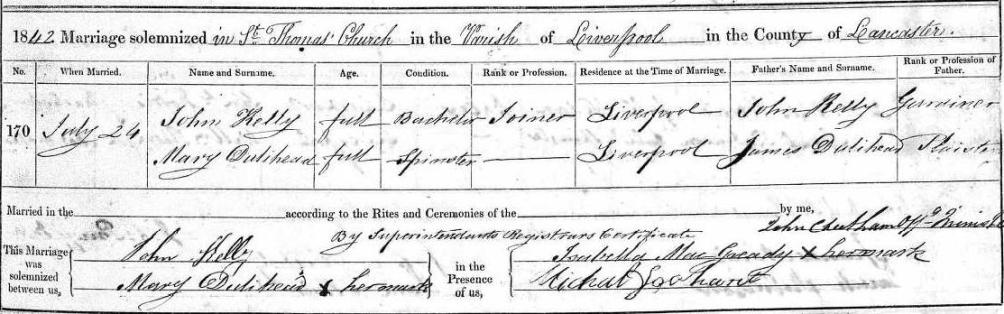 1842 Marriage solemnized in St. Thomas' Church in the Parish of Liverpool in the County of Lancaster.
No. When Married. Name and Surname. Age. Condition. Rank or Profession. Residence at the Time of Marriage. Father's Name and Surname. Rank or Profession of Father.
170 July 24 John Kelly full Bachelor Joiner Liverpool John Kelly
Mary Dulihead full Spinster Liverpool James Dulihead
Married in the according to the Rites and Ceremonies of the by me,
By Superintendants Registrars Certificate
This Marriage was solemnized between us,
John Kelly
Mary Dulihead x her mark
in the Presence of us,
Isabella Mac x her mark